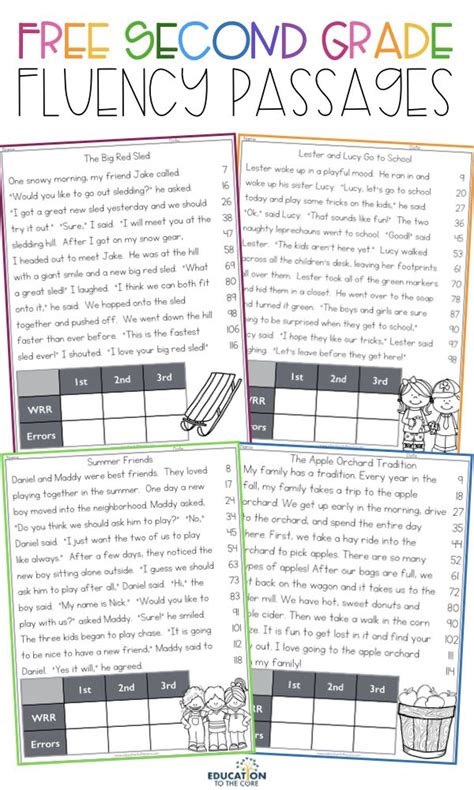 FREE SECOND GRADE
FLUENCY PASSAGES
Name Date
The Big Red Sled
One snowy morning, my friend Jake called. 7
"Would you like to go out sledding?" he asked. 16
"I got a great new sled yesterday and we should 26
try it out." "Sure," I said. "I will meet you at the 38
sledding hill. After I got on my snow gear, 47
I headed out to meet Jake. He was at the hill 58
with a giant smile and a new big red sled. "What 69
a great sled!" I laughed. "I think we can both fit 80
onto it," he said. We hopped onto the sled 89
together and pushed off. We went down the hill 98
faster than ever before. "This is the fastest 106
sled ever!" I shouted. "I love your big red sled!" 116
1st 2nd 3rd
WRR
Errors
Lester and Lucy Go to School
Lester woke up in a playful mood. He ran in and 9
woke up his sister Lucy. "Lucy, let's go to school 20
today and play some tricks on the kids," he said. 27
"Ok," said Lucy. "That sounds like fun!" The two 34
naughty leprechauns went to school. "Good!" said 45
Lester. "The kids aren't here yet." Lucy walked 53
across all the children's desk, leaving her footprints 61
all over them. Lester took all of the green markers 71
and hid them in a closet. He went over to the soap 78
and turned it green. "The boys and girls are sure 87
going to be surprised when they get to school," 94
"I hope they like our tricks," Lester said
"Let's leave before they get here!" 98
1st 2nd 3rd
WRR
Errors
Summer Friends
Daniel and Maddy were best friends. They loved 8
playing together in the summer. One day a new 17
boy moved into the neighborhood. Maddy asked, 24
"Do you think we should ask him to play?" "No," 34
Daniel said. "I just want the two of us to play
like always." After a few days, they noticed the
new boy sitting alone outside. "I guess we should
ask him to play after all," Daniel said. "Hi," he
said. "My name is Nick." "Would you like to
play with us?" Maddy asked. "Sure!" he smiled.
The three kids began to play chase. "It is going
to be nice to have a new friend," Maddy said to
Daniel. "Yes it will," he agreed. 118
1st 2nd 3rd
WRR
Errors
The Apple Orchard Tradition
My family has a tradition. Every year in the 9
fall, my family takes a trip to the apple 18
orchard. We get up early in the morning, drive 27
to the orchard, and spend the entire day 35
there. First, we take a hay ride into the 44
orchard to pick apples. There are so many 52
types of apples! After our bags are full, we 61
get back on the wagon and it takes us to the
cider mill. We have hot, sweet donuts and 80
apple cider. Then we take a walk in the corn 90
maze. It is fun to get lost in it and find your
way out. I love going to the apple orchard
with my family! 114
1st 2nd 3rd
WRR
Errors
EDUCATION
TO THE CORE